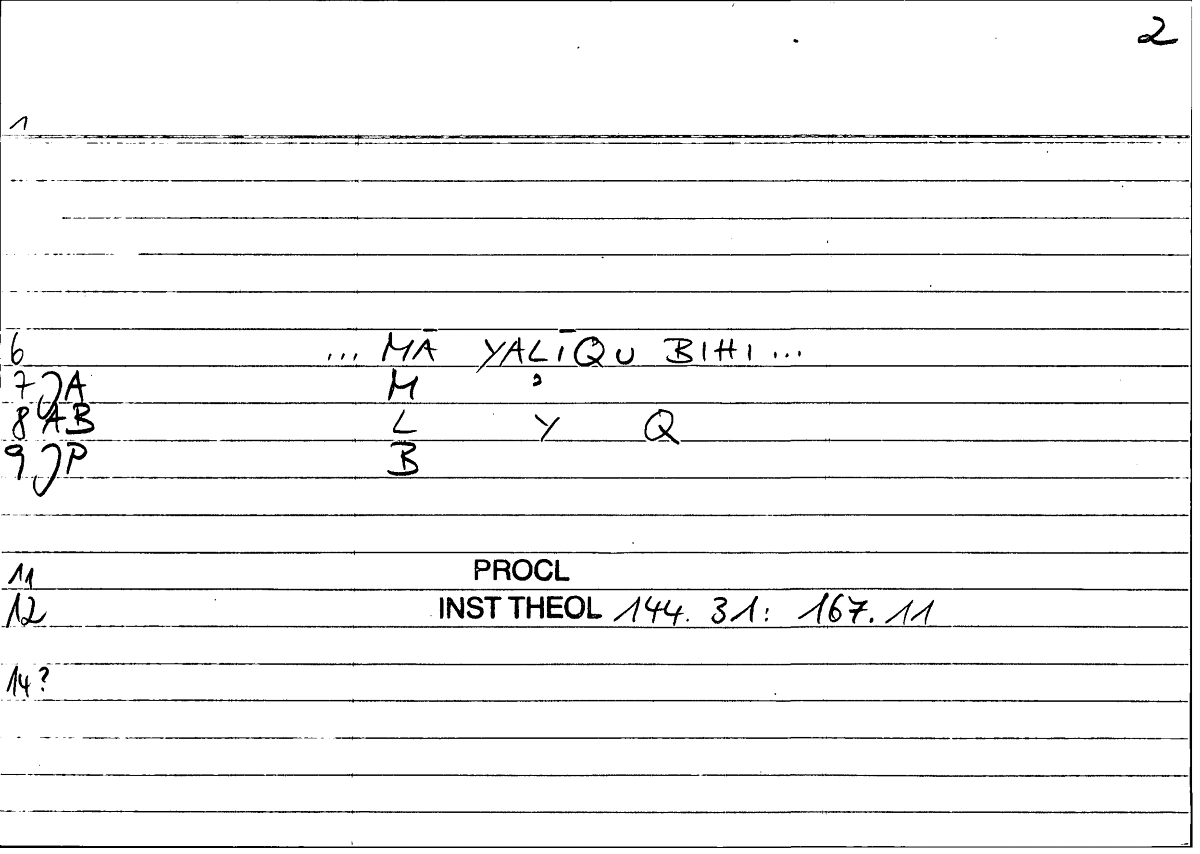 2
1
6 ... MĀ YALĪQU BIHI ...
7 JA M ʾ
8 AB L Y Q
9 JP B
11 PROCL
12 INST THEOL 144. 31: 167. 11
14?